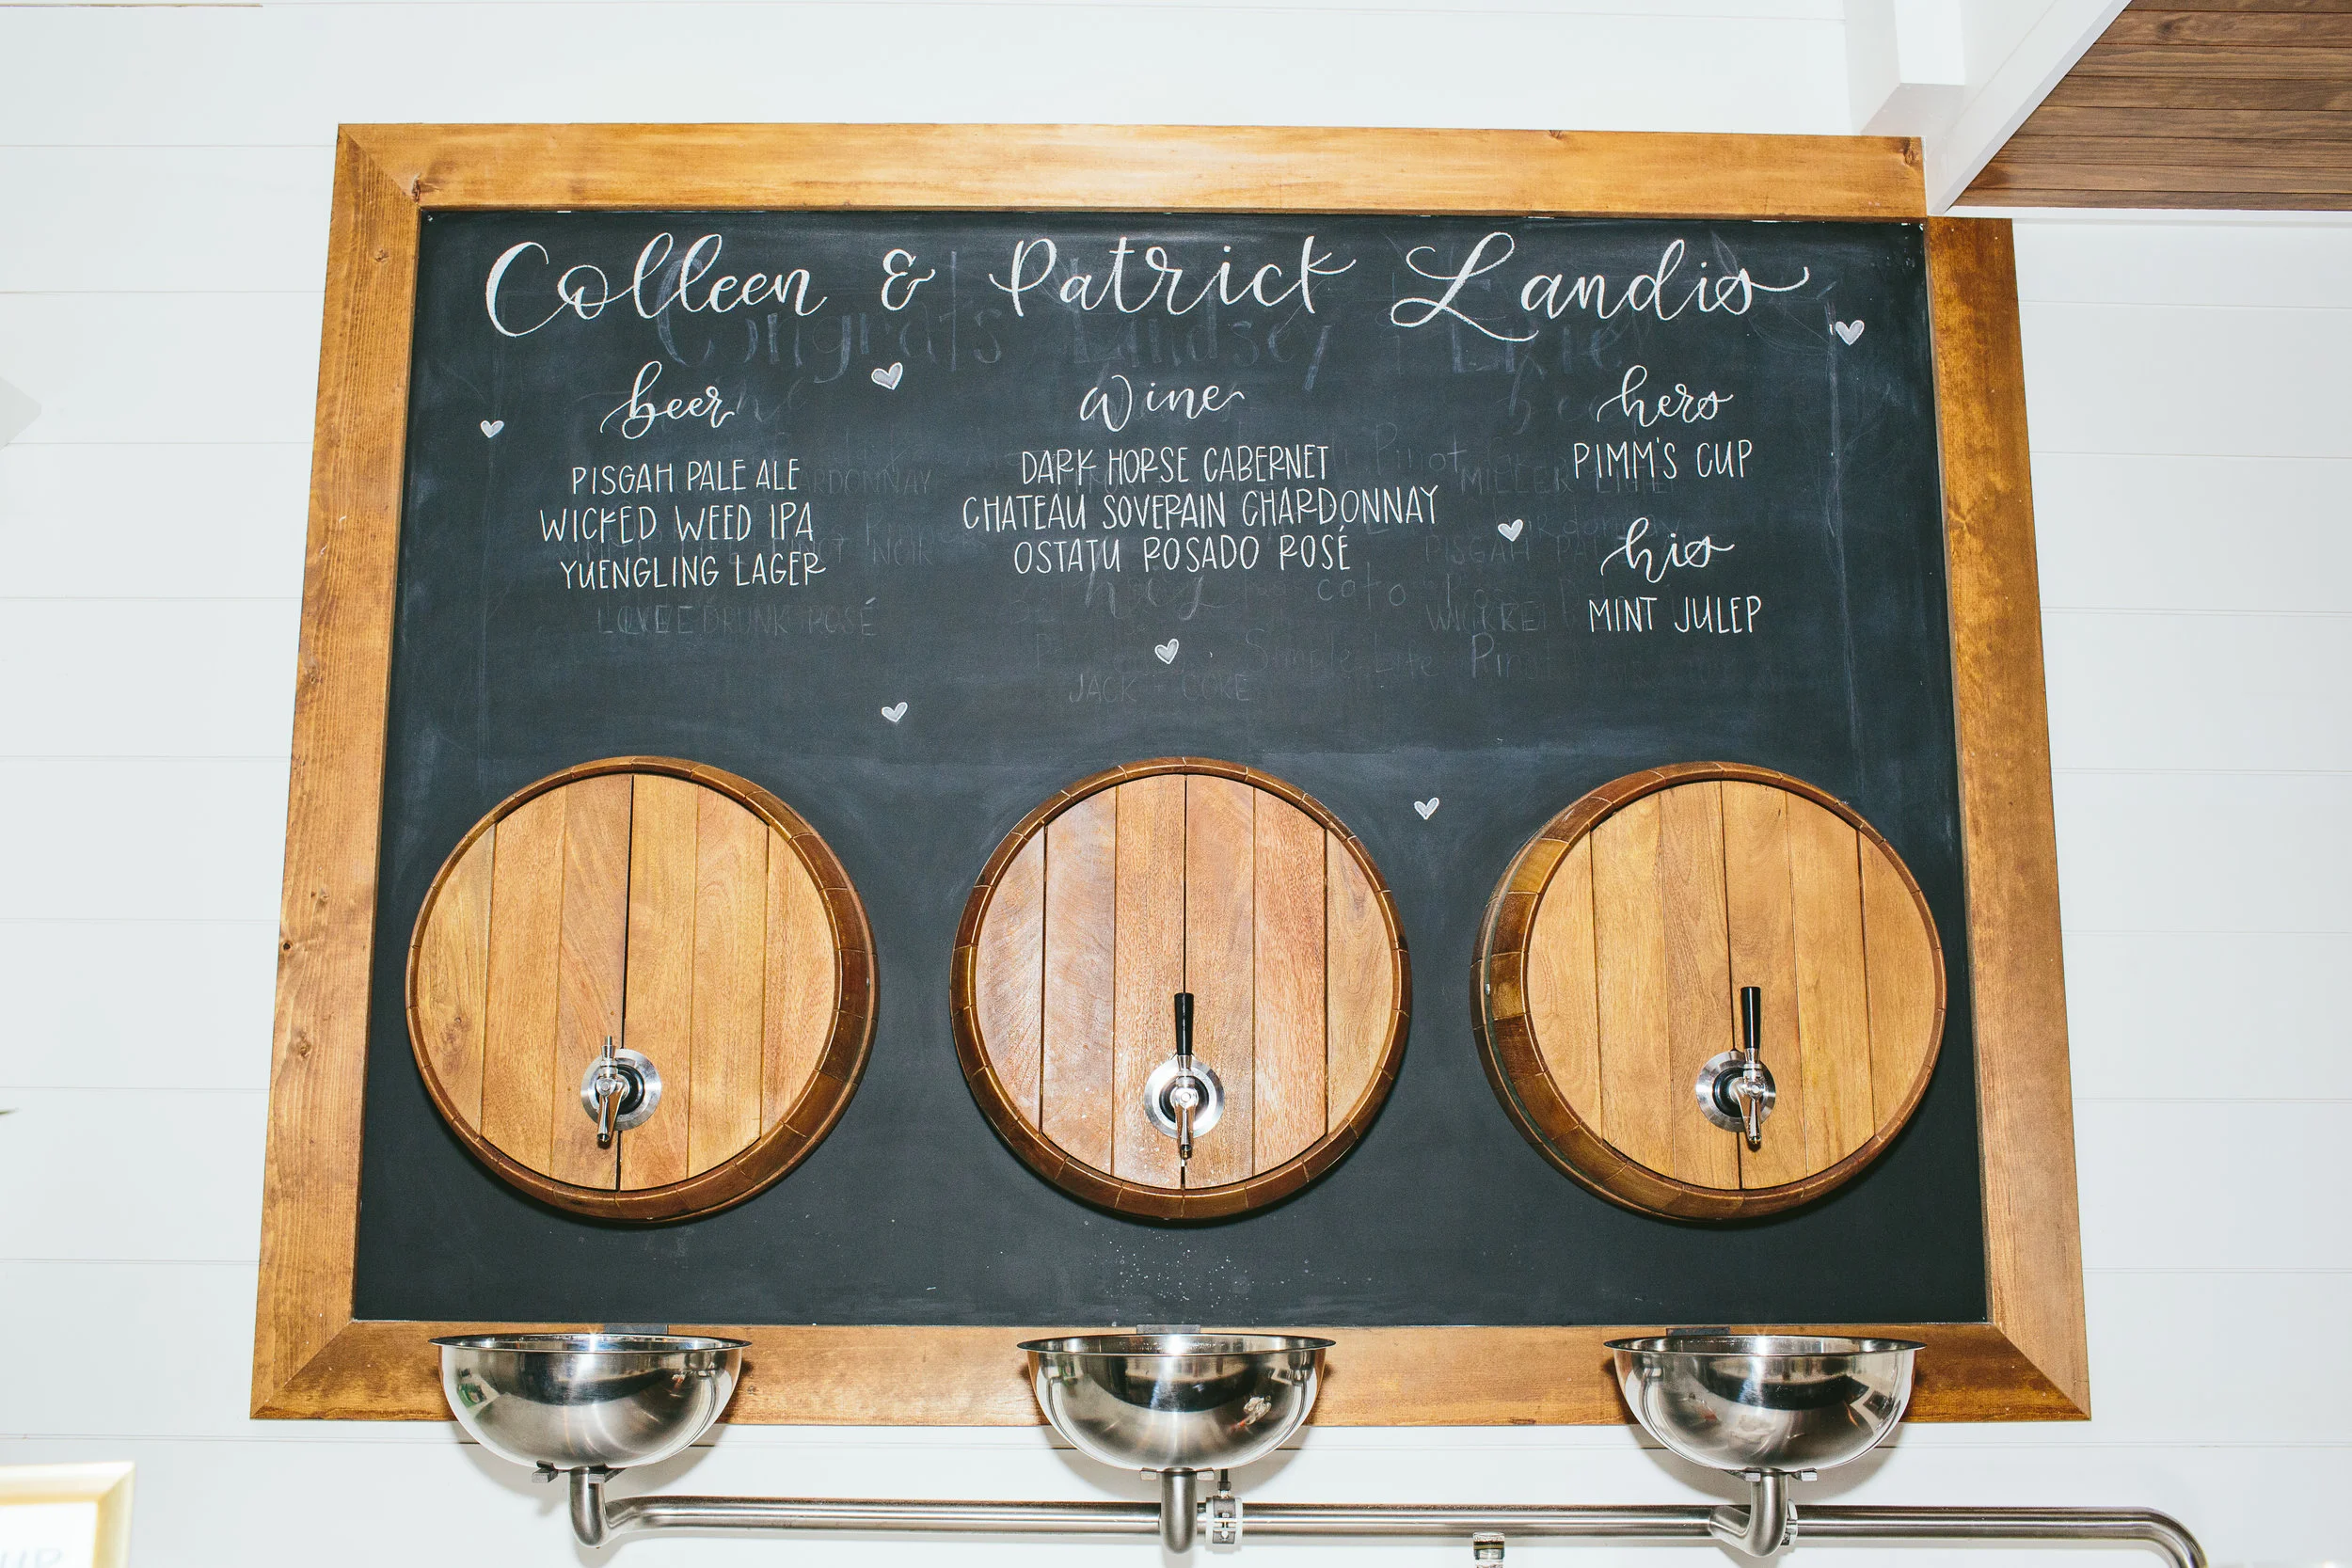 Colleen & Patrick Landis
Congrats Lindsey
beer
PISGAH PALE ALE
WICKED WEED IPA
YUENGLING LAGER
DRUNK ROSÉ
wine
DARK HORSE CABERNET
CHATEAU SOVERAIN CHARDONNAY
OSTATU ROSADO ROSÉ
JACK + COKE
hers
PIMM'S CUP
his
MINT JULEP